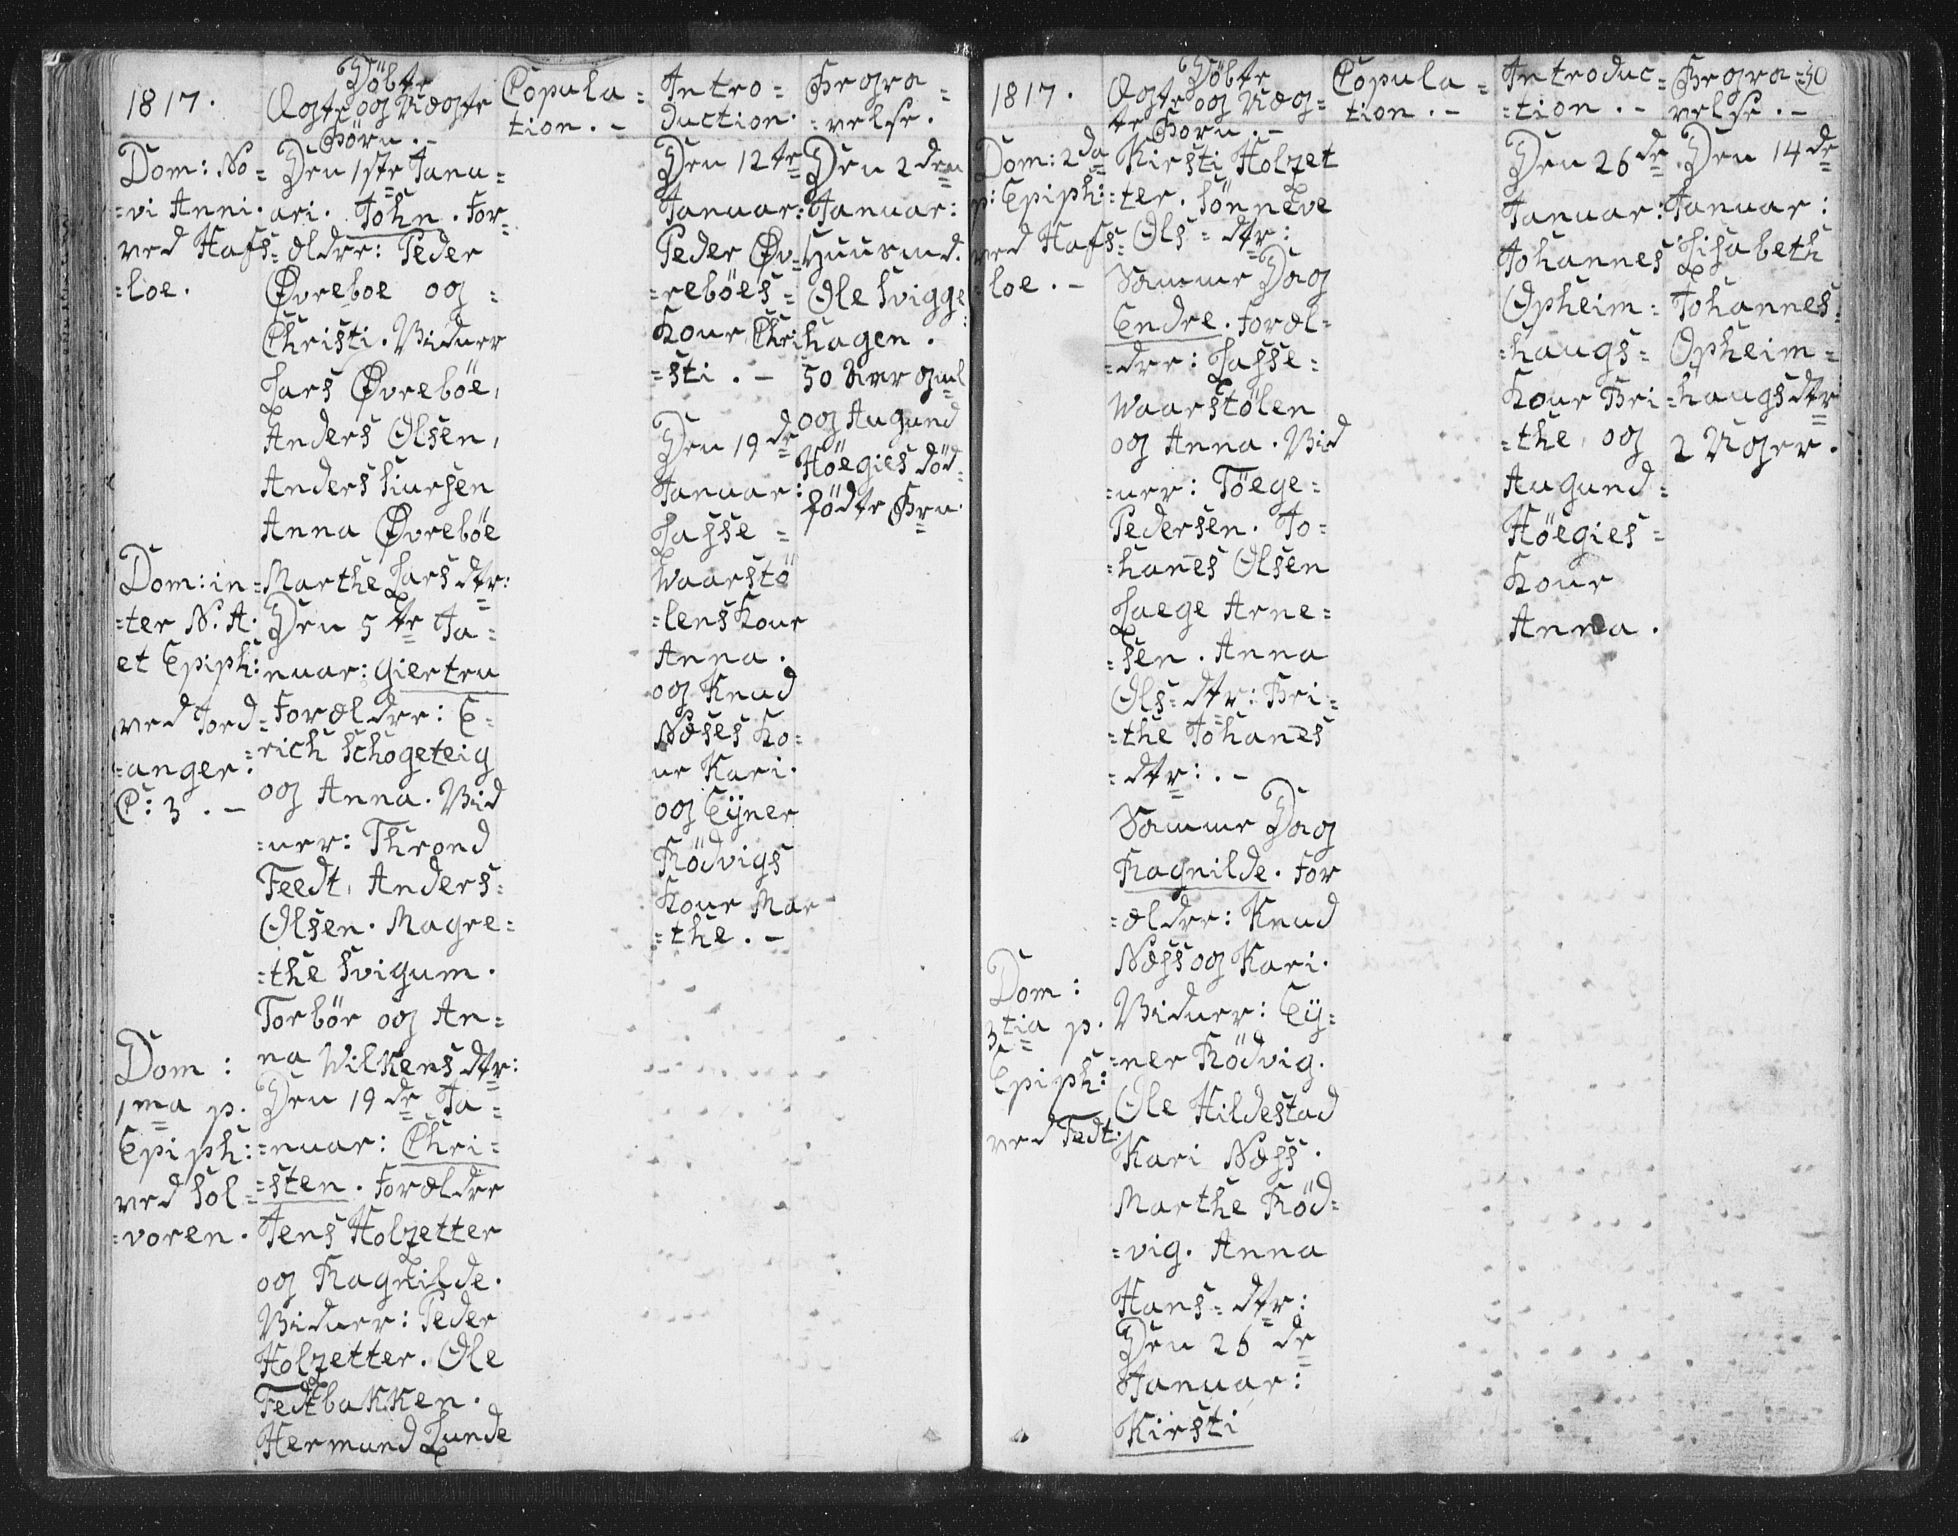 1817.
Döbte
Ægte og Uægte
Börn. -
Copula=
tion. -
Intro=
duction.
Begra=
=velse.
Dom: No=
=vi Anni.
ved Hafs=
=loe.
Den 1ste Janu=
ari. John. For=
=ældre: Peder
Øvreboe og =
Christi. Vidner
Lars Øvreböe,
Anders Olsen,
Anders Siursen
Anna Øvreböe
Marthe Larsdtr:
Dom: in=
=ter N. A.
et Epiph:
ved Jord=
=anger.
C: 3. -
Den 5te Ja=
nuar: Giertru
Forældre: E=
=rich Schogeteig
og Anna. Vid
=ner: Thrond
Feedt, Anders=
Olsen. Magre=
=the Svigum.
Torbör og An=
na Wilkensdtr:
Dom:
1ma p.
Epiph:
ved Sol=
=voren.
Den 19de Ja=
=nuar: Chri=
=sten. Forældre
Jens Holzetter
og Ragnilde.
Vidner: Peder
Holzetter. Ole
Fedtbakken.
Hermund Lunde
Den 12te
Januar:
Peder Øv=
=reböes=
Kone Chri
=sti. -
Den 19de
Januar:
Lasse =
Waarstö
=lens Kone
Anna.
og Knud
Næses Ko=
ne Kari.
og Eÿner
Rödvigs
Kone Mar
=the. -
Den 2den
Januar:
Huusmd.
Ole Svigge
hagen.
50 Aar gml
og Augund
Höegies död=
födte Brn.
1817.
Döbte
Ægte og Uæg=
te Börn. -
Copula=
tion. -
Introduc=
=tion. -
Begra=
velse. -
30
Dom: 2da
p: Epiph:
ved Hafs=
=loe. -
Kirsti Holzet
=ter. Sönneve
Ols=dtr:
Samme Dag
Endre. Foræl=
=dre: Lasse=
Waarstölen
og Anna. Vid
=ner: Töege=
Pedersen. Jo=
=hanes Olsen
Laege Arne=
=sen. Anna
Ols=dtr: Bri=
=the Johanes
=dtr:. -
Samme Dag
Ragnilde. For
=ældre: Knud
Næss og Kari.
Dom:
3tia p.
Epiph:
ved Fedt.
Vidner: Eÿ=
=ner Rödvig.
Ole Hildestad
Kari Næss.
Marthe Röd=
=vig. Anna
Hans=dtr:
Den 26de
Januar:
Kirsti
Den 26de
Januar:
Johannes
Opheim=
=haugs=
Kone Bri=
=the, og
Augund=
Höegies=
Kone
Anna.
Den 14de
Januar:
Lisabeth
Johannes=
Opheim=
=haugsdtr
2 Uger.